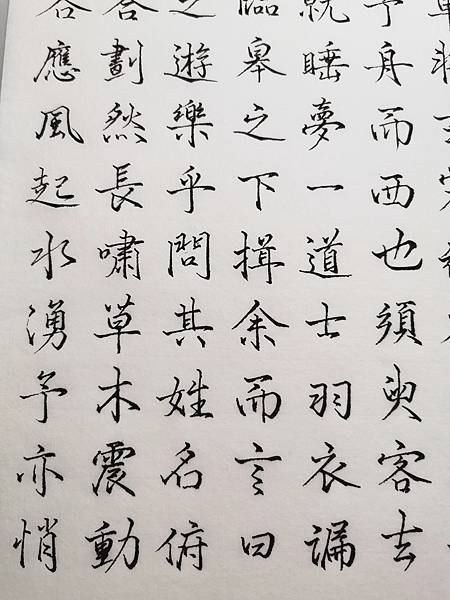 予舟而西也須臾客去
就睡夢一道士羽衣
臨皋之下揖余而言曰
之遊樂乎問其姓名俯
劃然長嘯草木震動
應風起水湧予亦悄